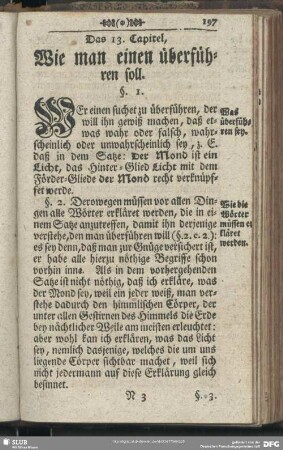 197
Das 13. Capitel,
Wie man einen überfüh-
ren soll.
§. 1.
WEr einen suchet zu überführen, der
will ihn gewiß machen, daß et-
was wahr oder falsch, wahr-
scheinlich oder unwahrscheinlich sey, z. E.
daß in dem Satze: der Mond ist ein
Licht, das Hinter-Glied Licht mit dem
Förder-Gliede der Mond recht verknüpf-
fet werde.
Was
überfüh-
ren sey.
§. 2. Derowegen müssen vor allen Din-
gen alle Wörter erkläret werden, die in ei-
nem Satze anzutreffen, damit ihn derjenige
verstehe, den man überführen will (§. 2. c. 2):
es sey denn, daß man zur Gnüge versichert ist,
er habe alle hierzu nöthige Begriffe schon
vorhin inne. Als in dem vorhergehenden
Satze ist nicht nöthig, daß ich erkläre, was
der Mond sey, weil ein jeder weiß, man ver-
stehe dadurch den himmlischen Cörper, der
unter allen Gestirnen des Himmels die Erde
bey nächtlicher Weile am meisten erleuchtet:
aber wohl kan ich erklären, was das Licht
sey, nemlich dasjenige, welches die um uns
liegende Cörper sichtbar machet, weil sich
nicht jedermann auf diese Erklärung gleich
besinnet.
Wie die
Wörter
müssen er
kläret
werden.
N 3
§. 3.
SLUB
DFG